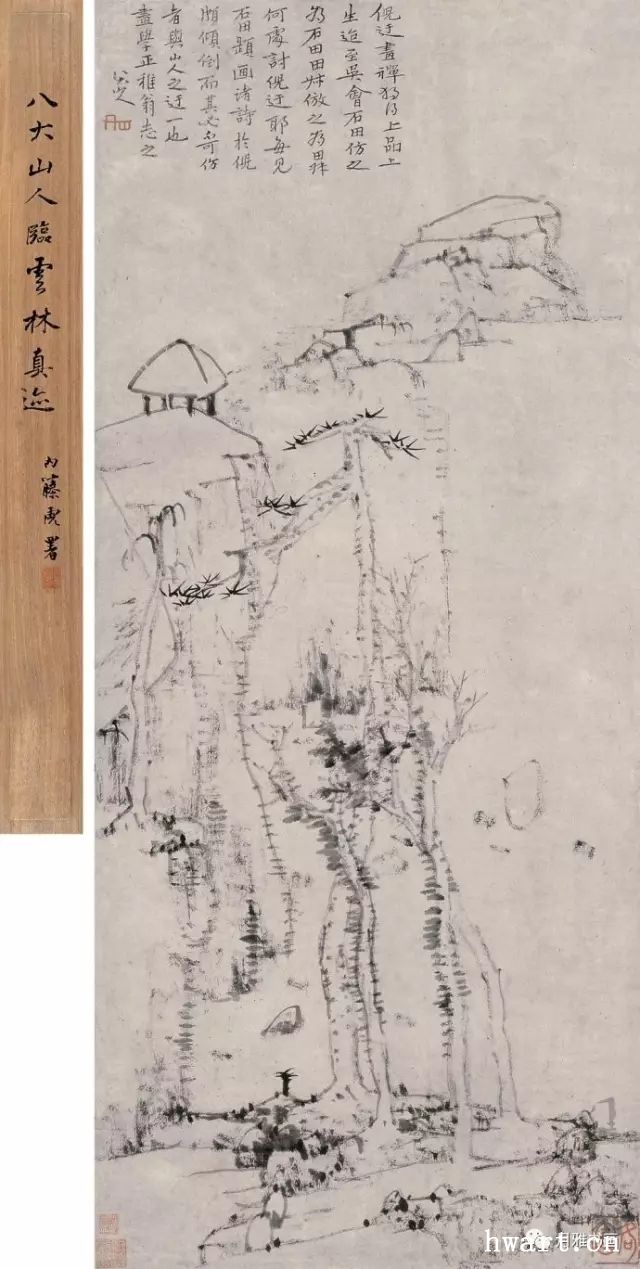 八大山人臨雲林真迹
内藤虎署
倪迂畫禪独得上品上
生迨至吳會石田仿之
為石田田叔倣之為田叔
何處討倪迂耶每見
石田題画諸詩於倪
頗傾倒而其必不可仿
者與山人之迂一也
學正稚翁志之
八大山人
月雅书画
hwart.cn